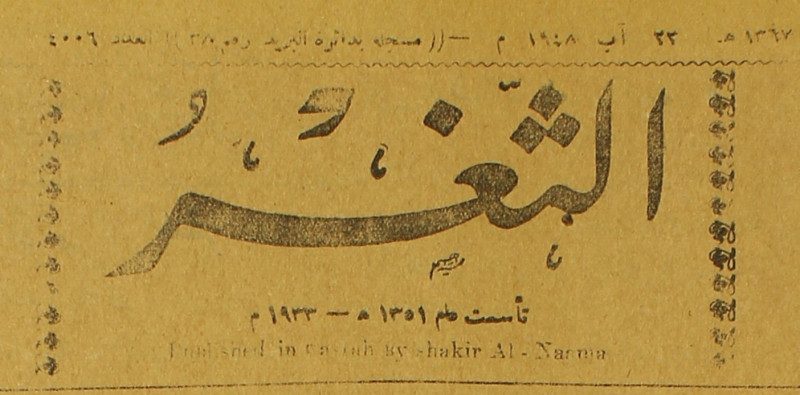 ١٣٦٧ هـ ٢٣ آب ١٩٤٨ م —(( مسجله بدائرة البريد رقم ٣٨ )) العدد ٤٠٠٦
الثَّغْرُ
تأسست عام ١٣٥١ ه — ١٩٣٣ م
Published in Basrah By shakir Al - Naama